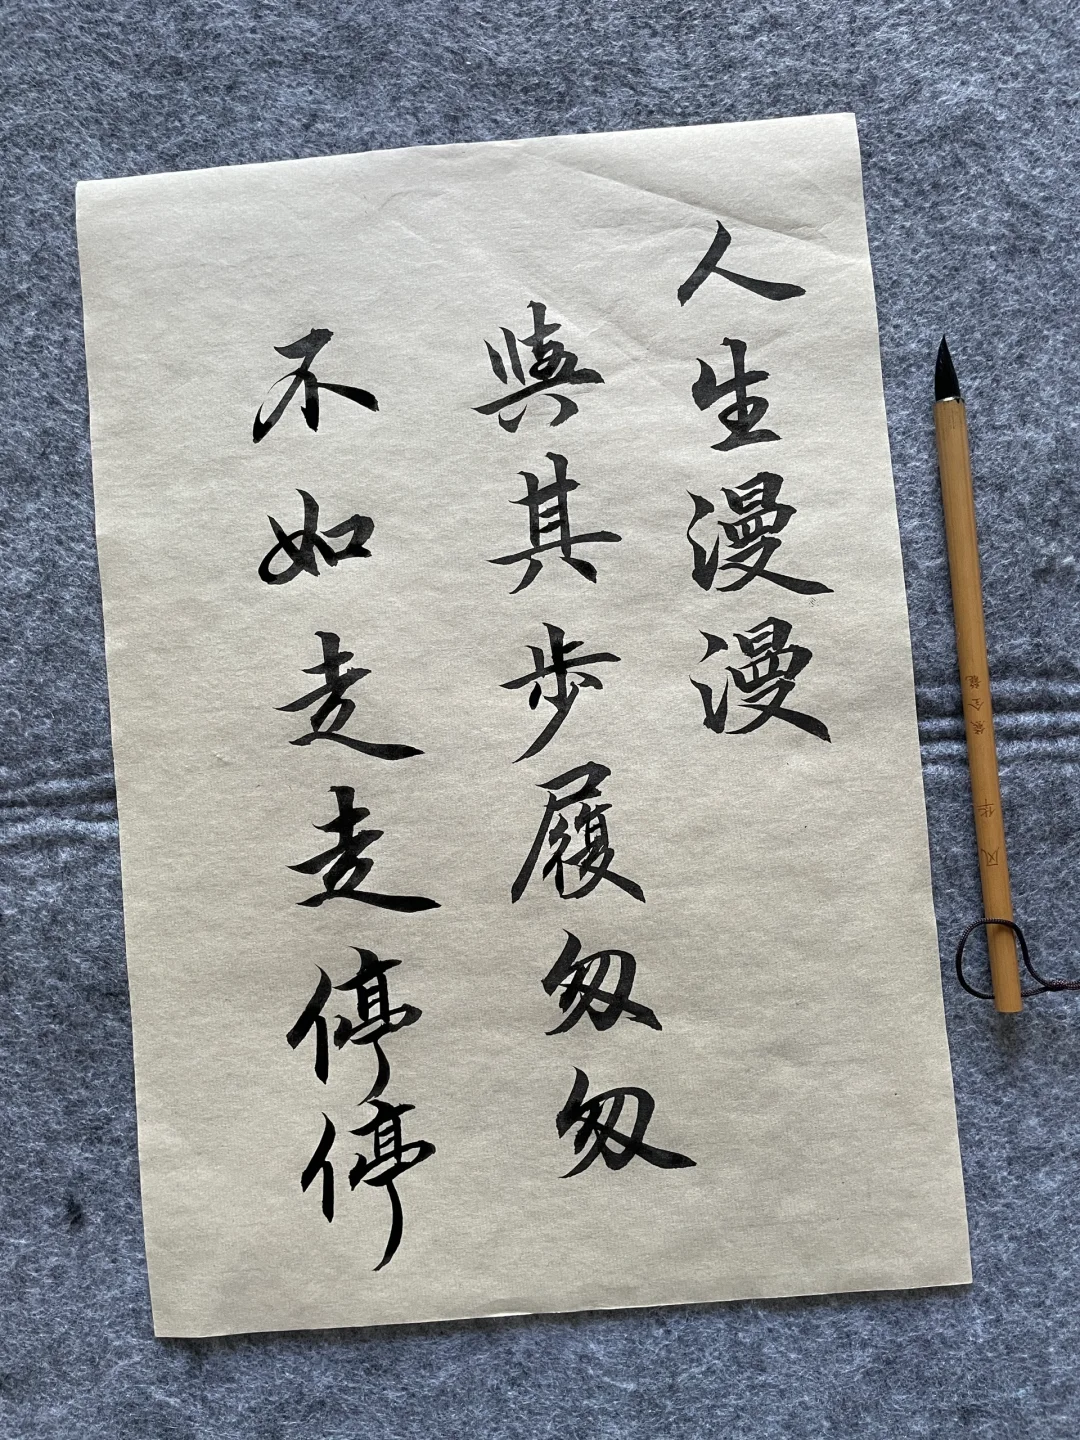 人生漫漫
與其步履匆匆
不如走走停停